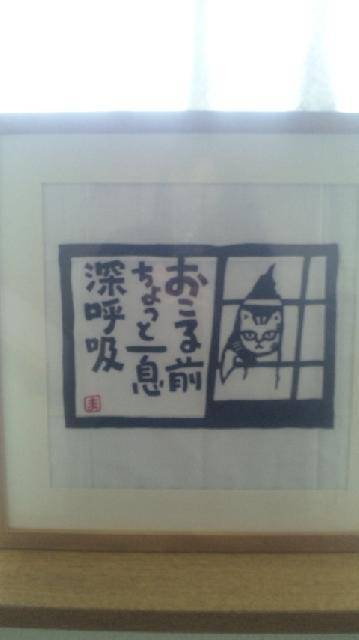 おこる前
ちょっと一息
深呼吸